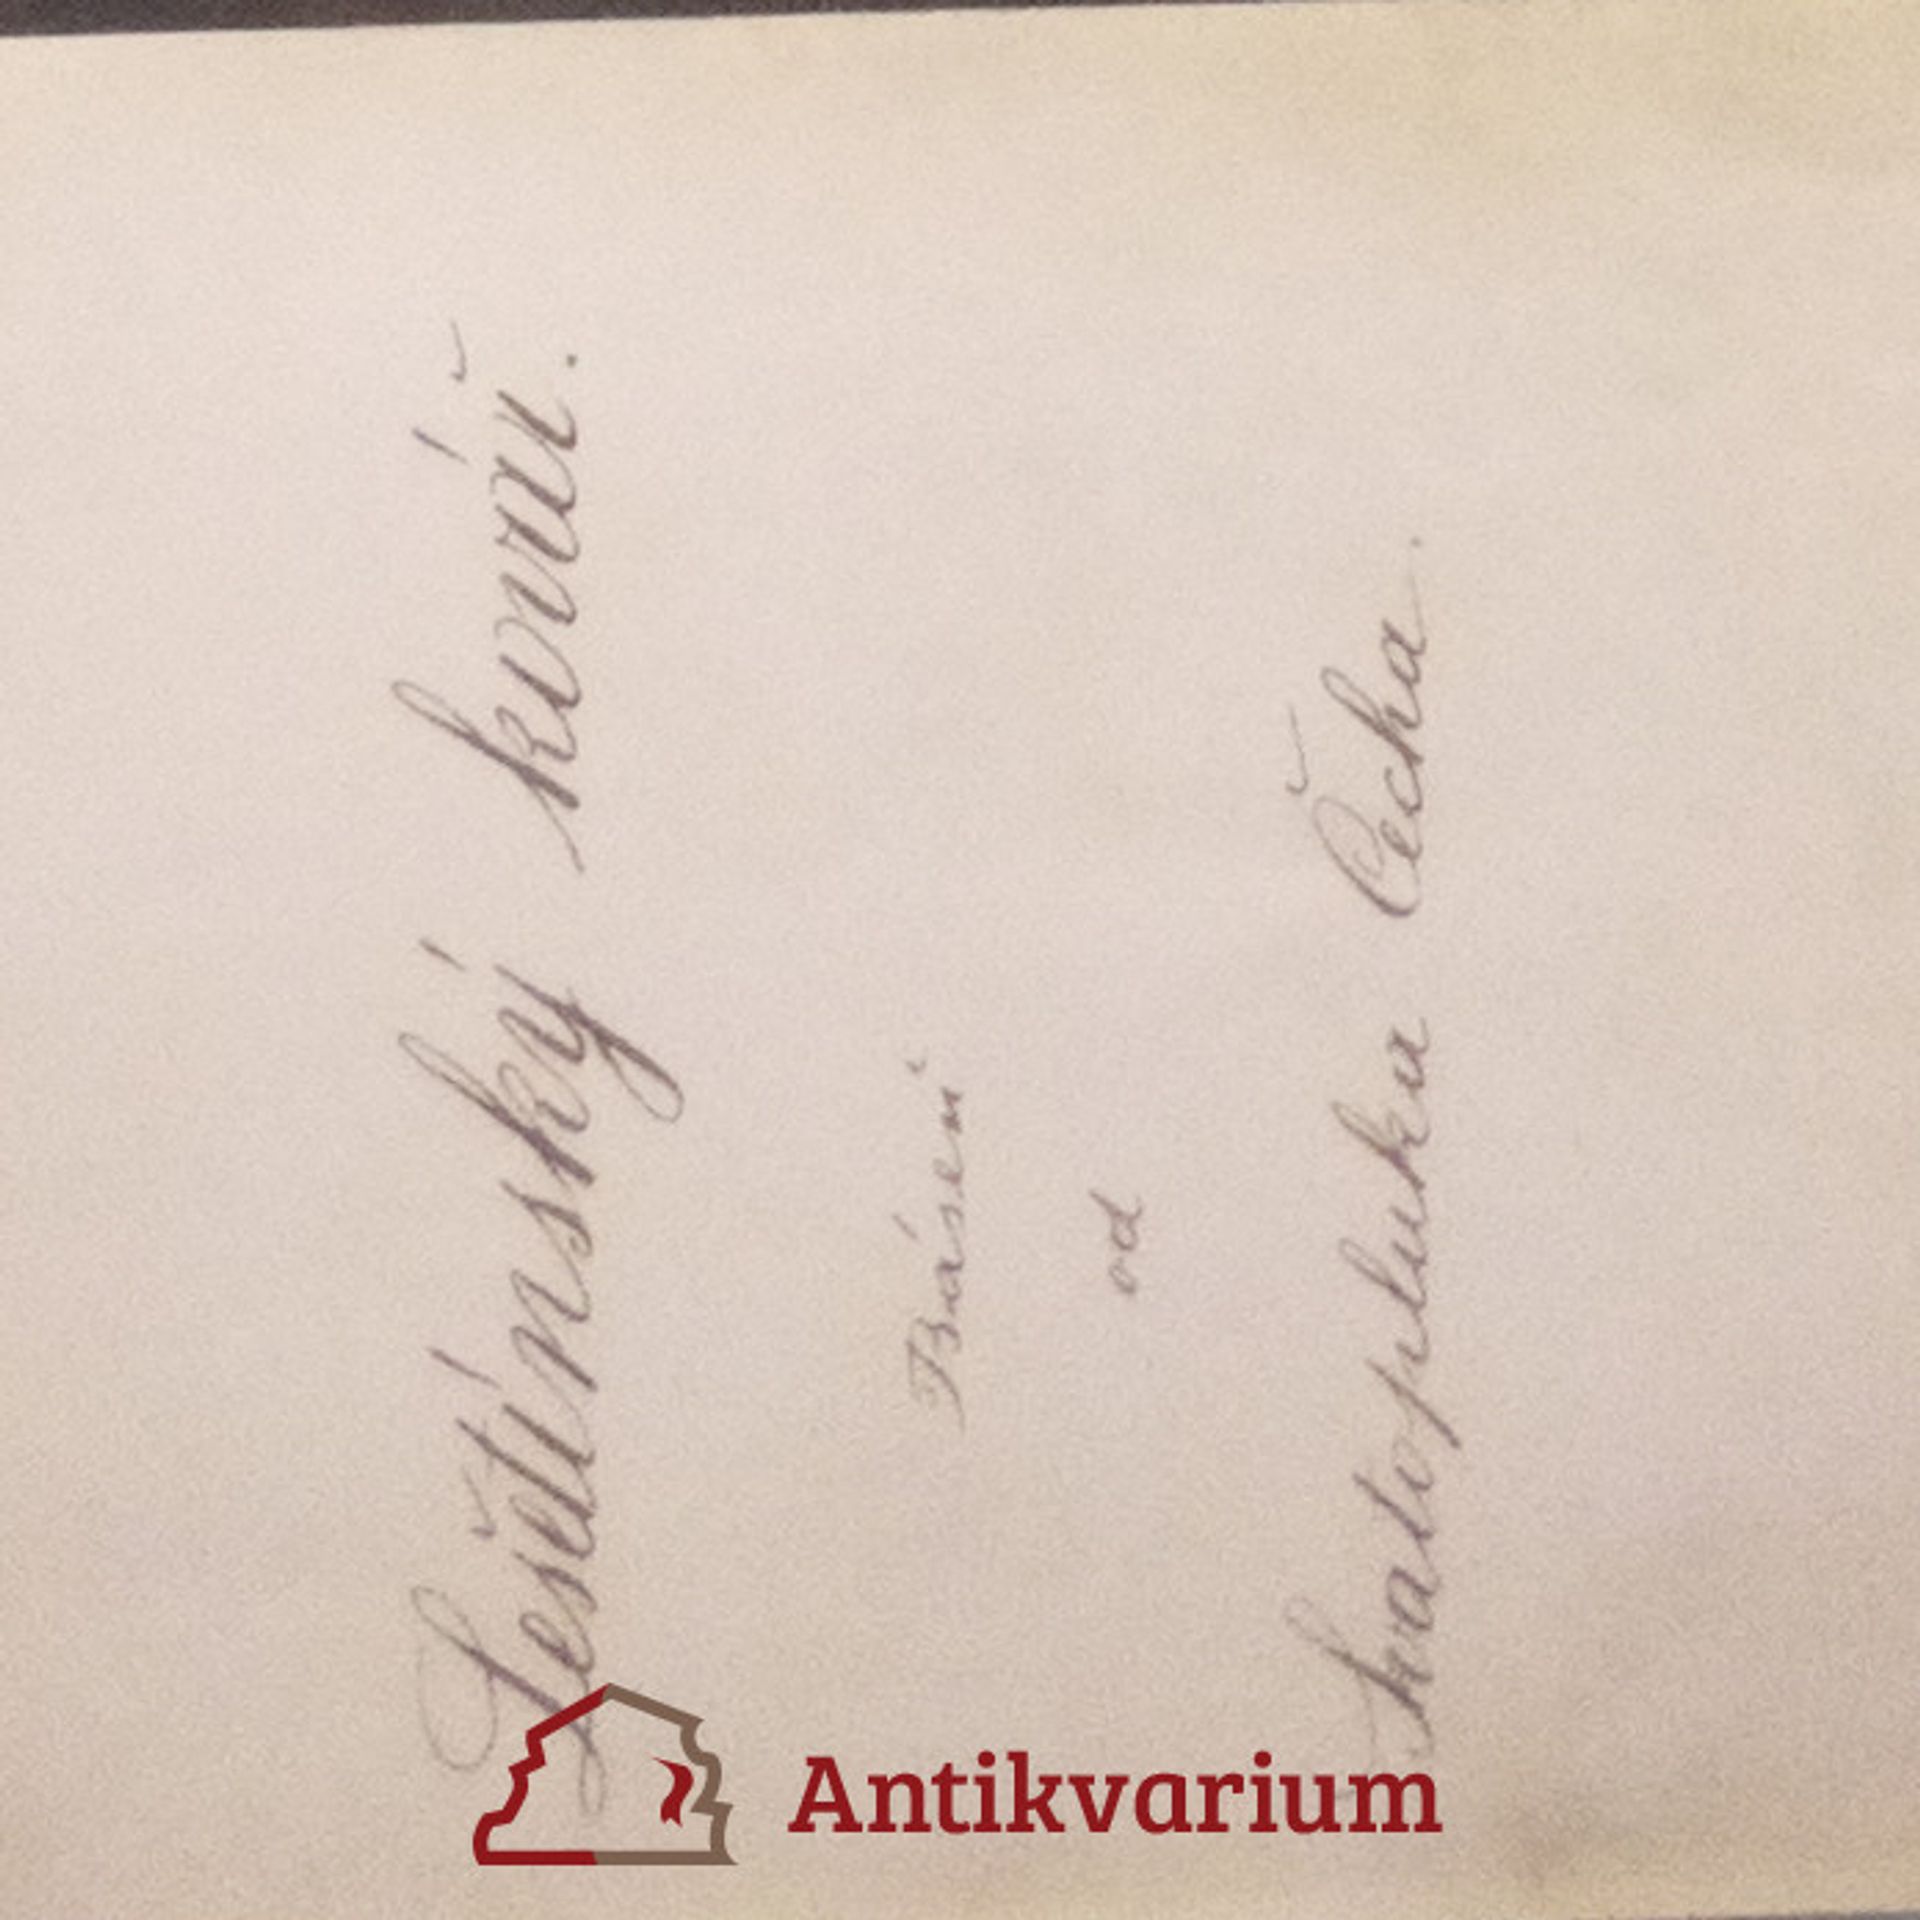 Lešetínský kovář.
Báseň
od
Svatopluka Čecha.
Antikvarium